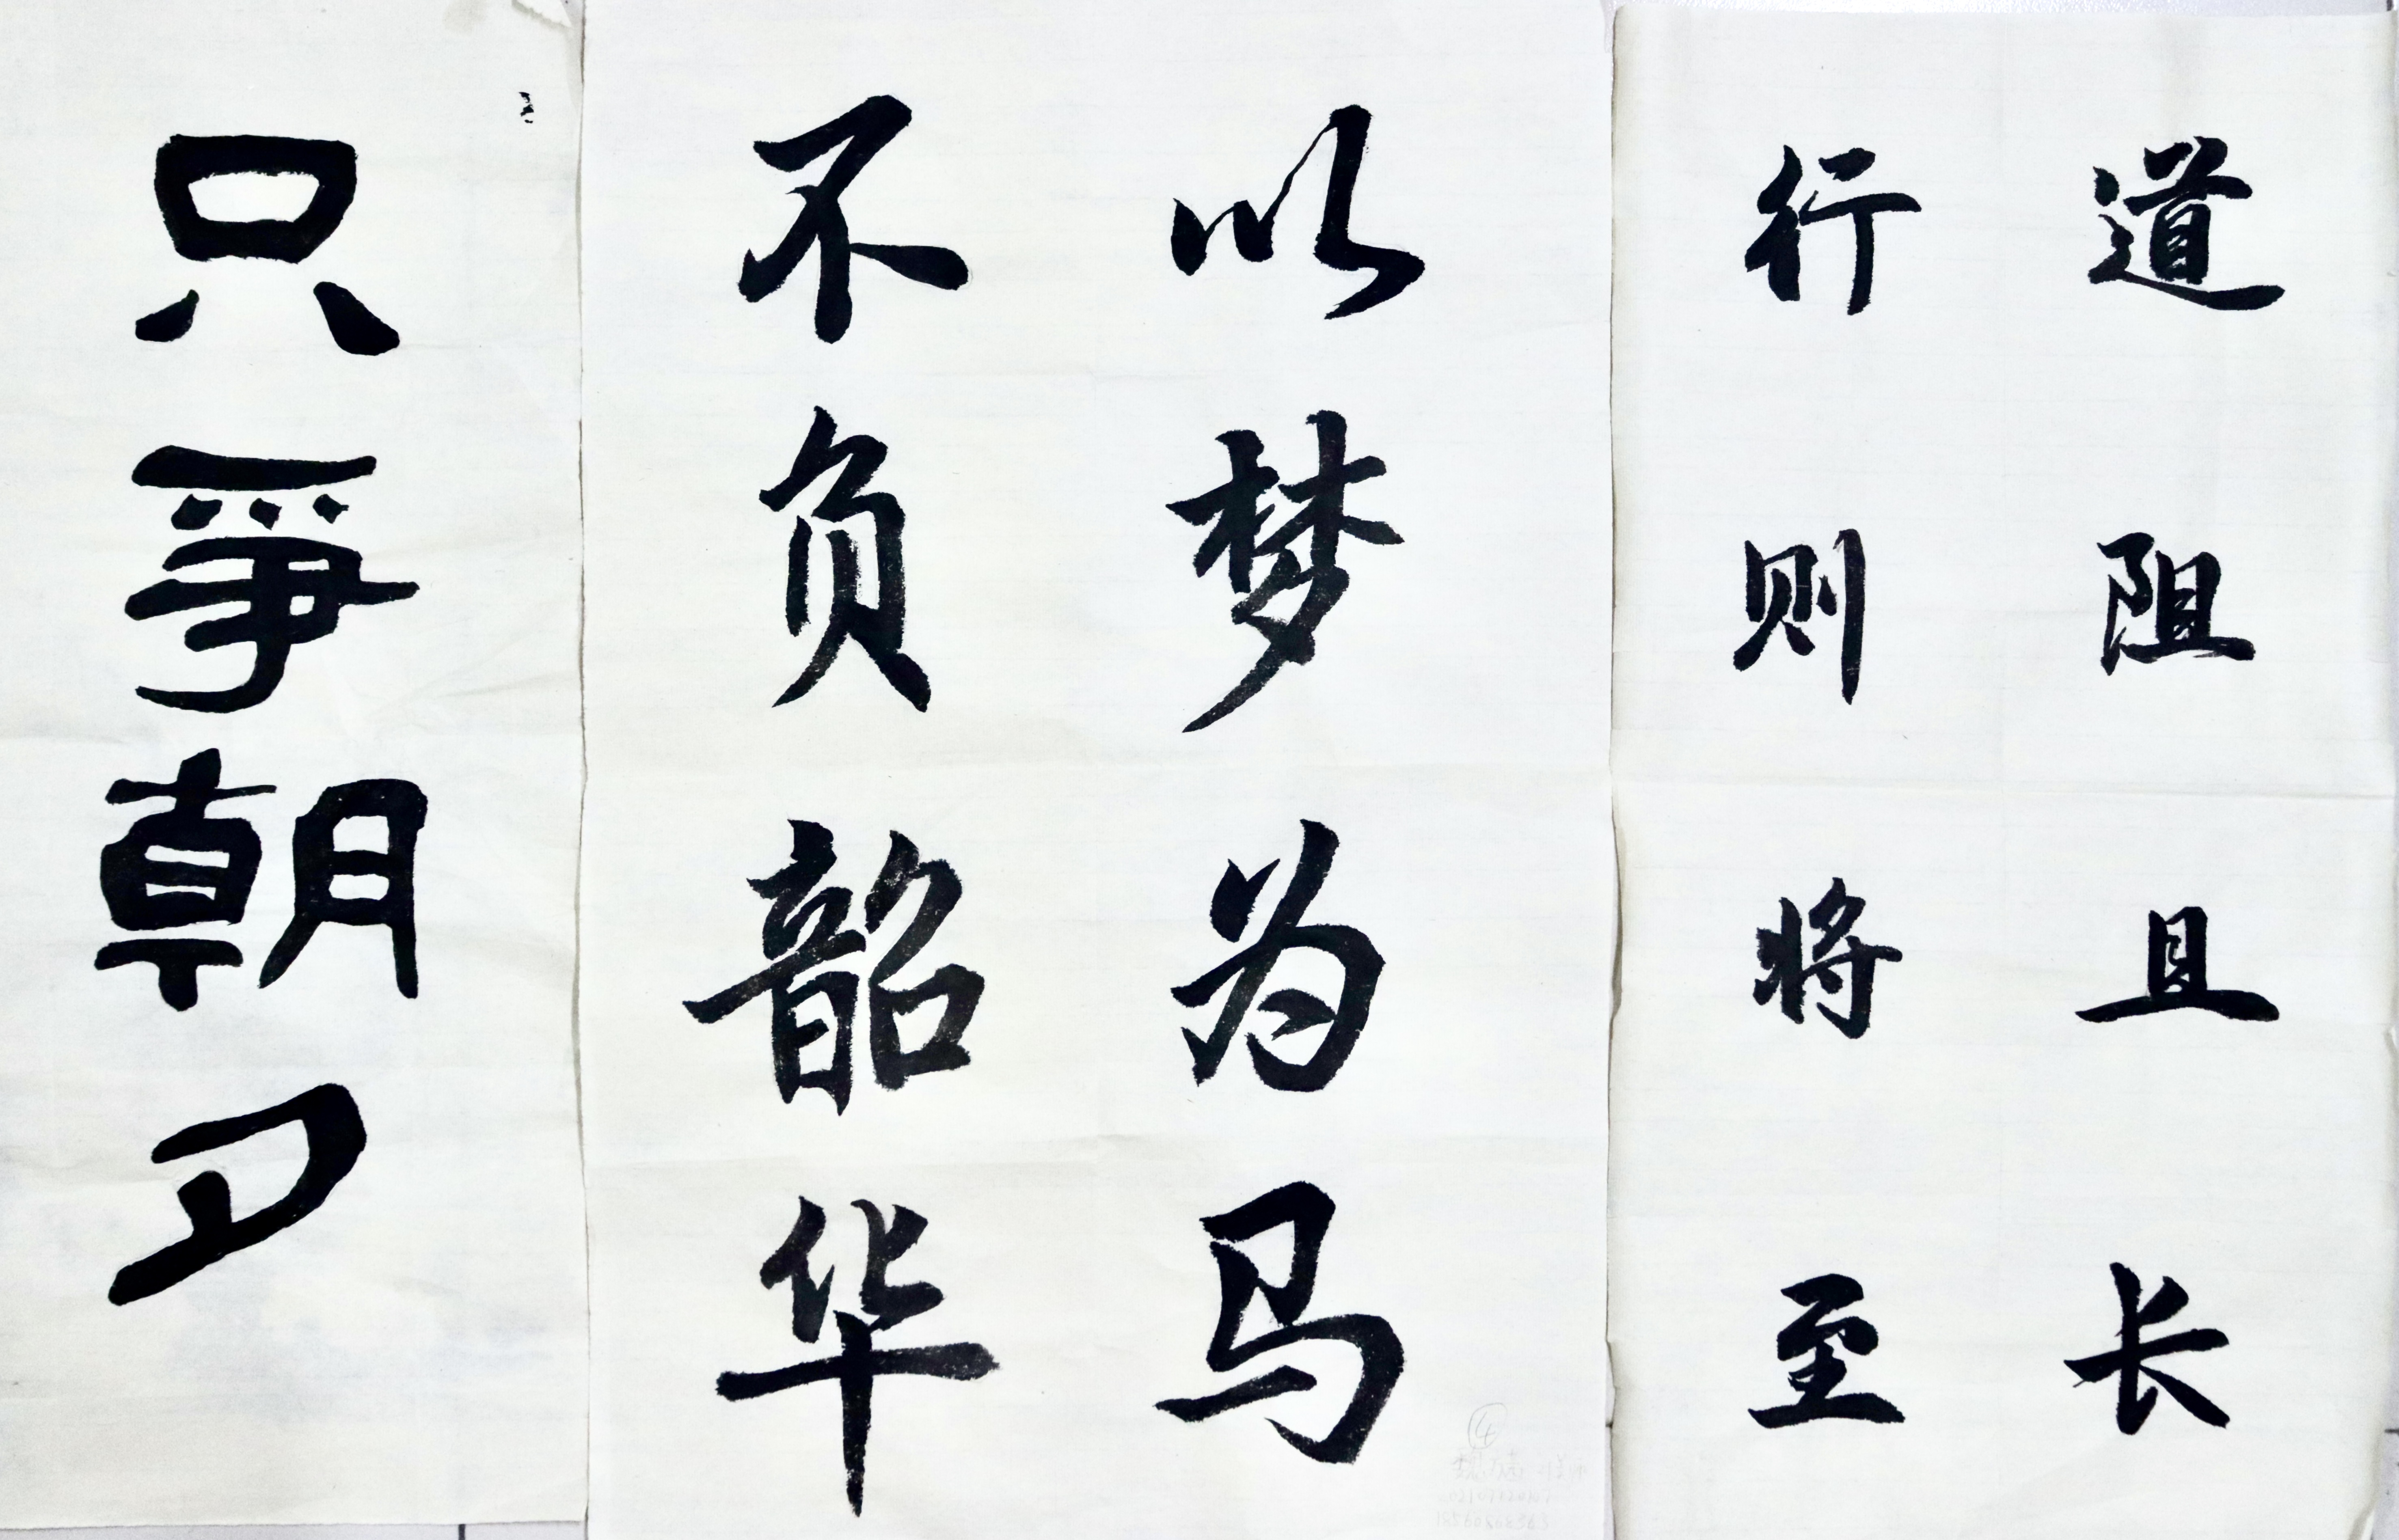 道阻且长
行则将至
以梦为马
不负韶华
只爭朝夕
④